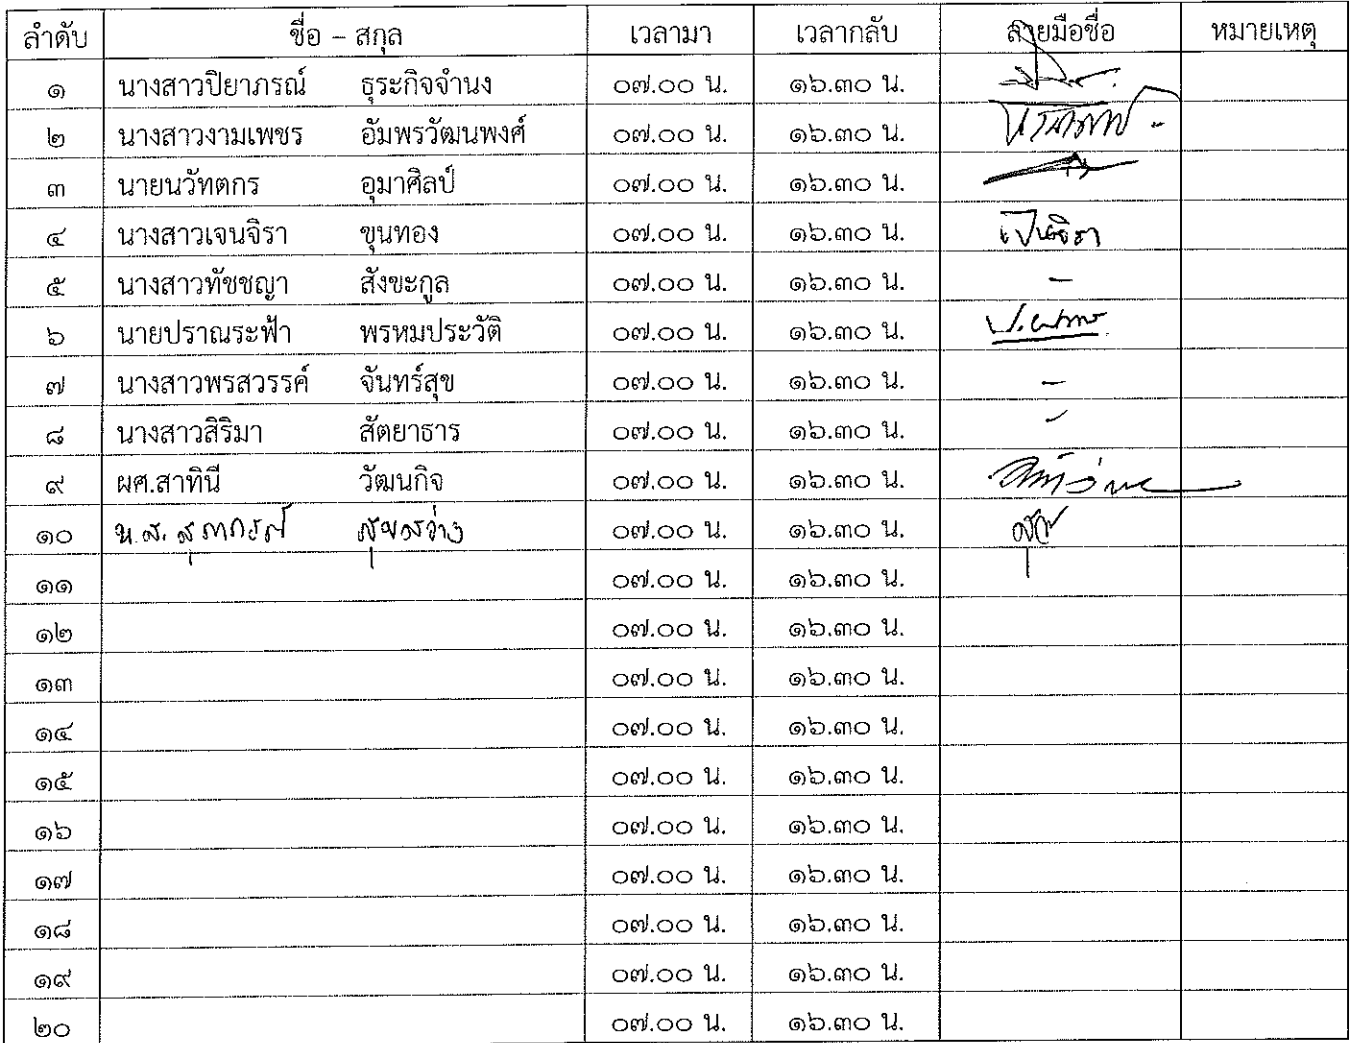 ลำดับ ชื่อ – สกุล เวลามา เวลากลับ ลายมือชื่อ หมายเหตุ
๑ นางสาวปิยาภรณ์ ธุระกิจจำนง ๐๗.๐๐ น. ๑๖.๓๐ น.
๒ นางสาวงามเพชร อัมพรวัฒนพงศ์ ๐๗.๐๐ น. ๑๖.๓๐ น.
๓ นายนวัทตกร อุมาศิลป์ ๐๗.๐๐ น. ๑๖.๓๐ น.
๔ นางสาวเจนจิรา ขุนทอง ๐๗.๐๐ น. ๑๖.๓๐ น. เจนจิรา
๕ นางสาวทัชชญา สังขะกูล ๐๗.๐๐ น. ๑๖.๓๐ น. –
๖ นายปราณระฟ้า พรหมประวัติ ๐๗.๐๐ น. ๑๖.๓๐ น.
๗ นางสาวพรสวรรค์ จันทร์สุข ๐๗.๐๐ น. ๑๖.๓๐ น. –
๘ นางสาวสิริมา สัตยาธาร ๐๗.๐๐ น. ๑๖.๓๐ น. –
๙ ผศ.สาทินี วัฒนกิจ ๐๗.๐๐ น. ๑๖.๓๐ น.
๑๐ น.ส. สุภาภรณ์ สุขสว่าง ๐๗.๐๐ น. ๑๖.๓๐ น.
๑๑ ๐๗.๐๐ น. ๑๖.๓๐ น.
๑๒ ๐๗.๐๐ น. ๑๖.๓๐ น.
๑๓ ๐๗.๐๐ น. ๑๖.๓๐ น.
๑๔ ๐๗.๐๐ น. ๑๖.๓๐ น.
๑๕ ๐๗.๐๐ น. ๑๖.๓๐ น.
๑๖ ๐๗.๐๐ น. ๑๖.๓๐ น.
๑๗ ๐๗.๐๐ น. ๑๖.๓๐ น.
๑๘ ๐๗.๐๐ น. ๑๖.๓๐ น.
๑๙ ๐๗.๐๐ น. ๑๖.๓๐ น.
๒๐ ๐๗.๐๐ น. ๑๖.๓๐ น.